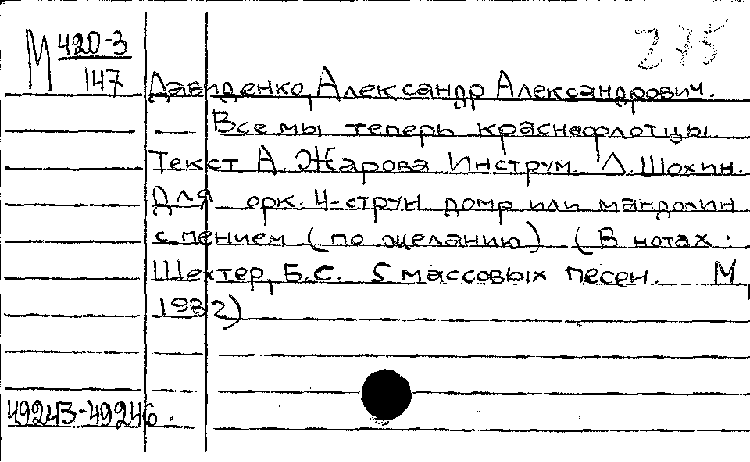 М 420-3
147
275
Давиденко, Александр Александрович.
Все мы теперь краснофлотцы.
Текст А. Жарова Инструм. Л. Шохин.
Для орк. 4-струн домр или мандолин
с пением (по желанию) (В нотах:
Шехтер, Б.С. 5 массовых песен. М,
1932)
49243-49246.